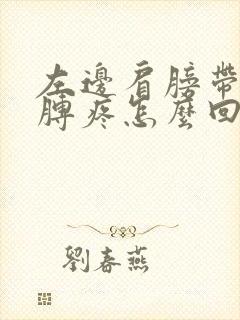 左邊肩膀帶
膊疼怎麼回
劉春燕